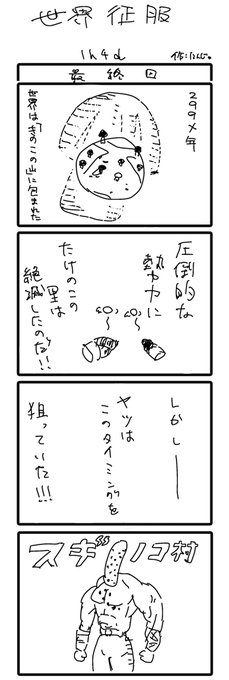 世界征服
1h4d
作:たんじ。
最終回
299X年
世界は「きのこの山」に包まれた
圧倒的な
勢力に
たけのこの
里は
絶滅したのだ!!
しかし——
ヤツは
このタイミングを
狙っていた!!!
スギノコ村